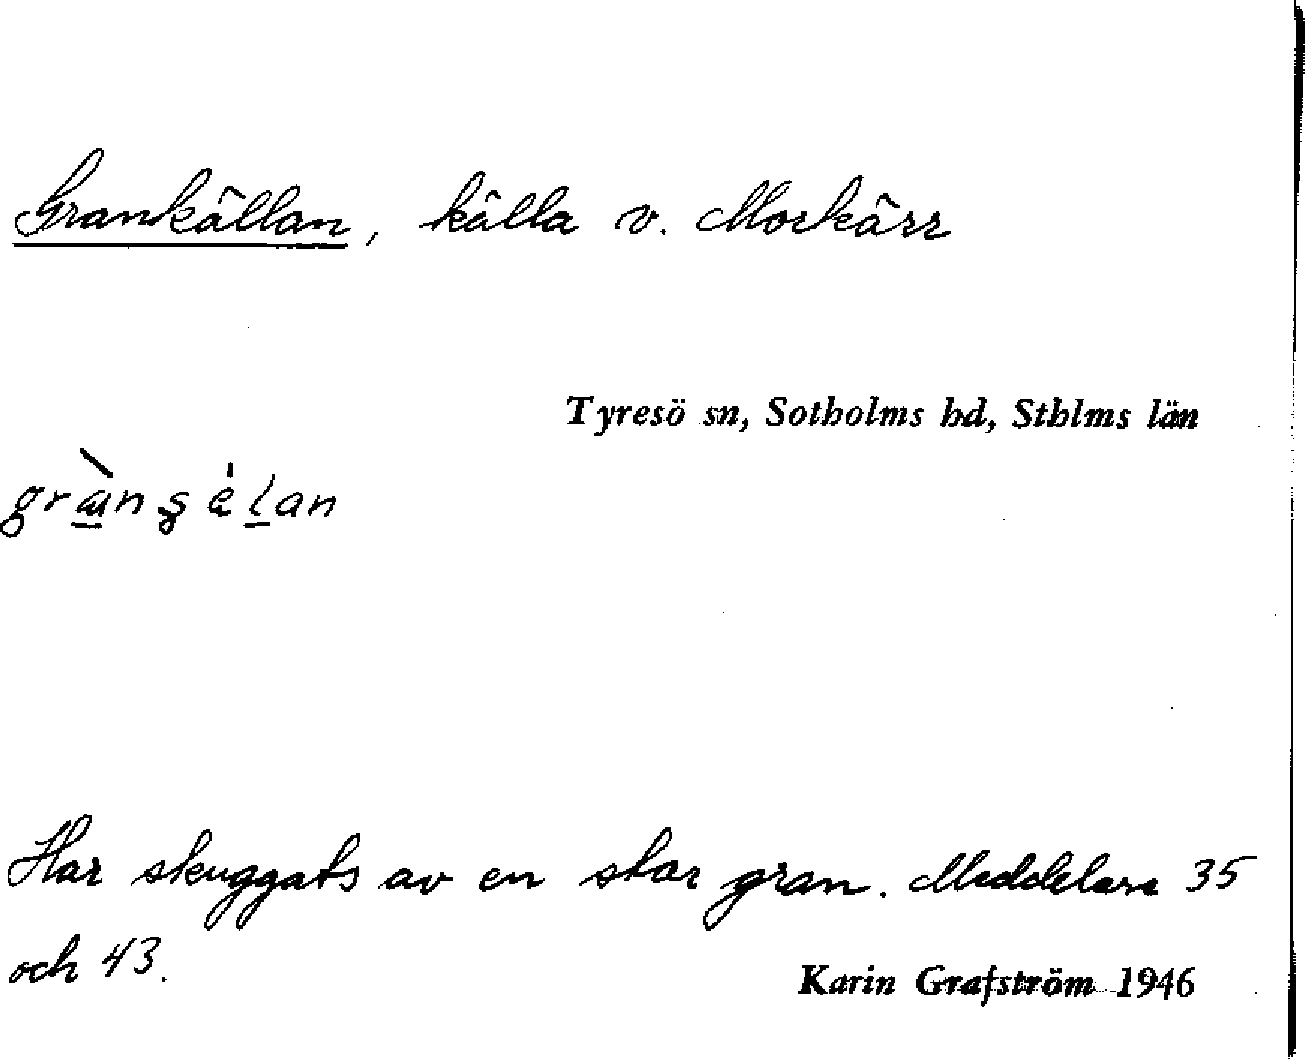 Grankällan, källa v. Morkärr
Tyresö sn, Sotholms hd, Sthlms län
Har skuggats av en stor gran. Meddelare 35
och 43.
Karin Grafström 1946